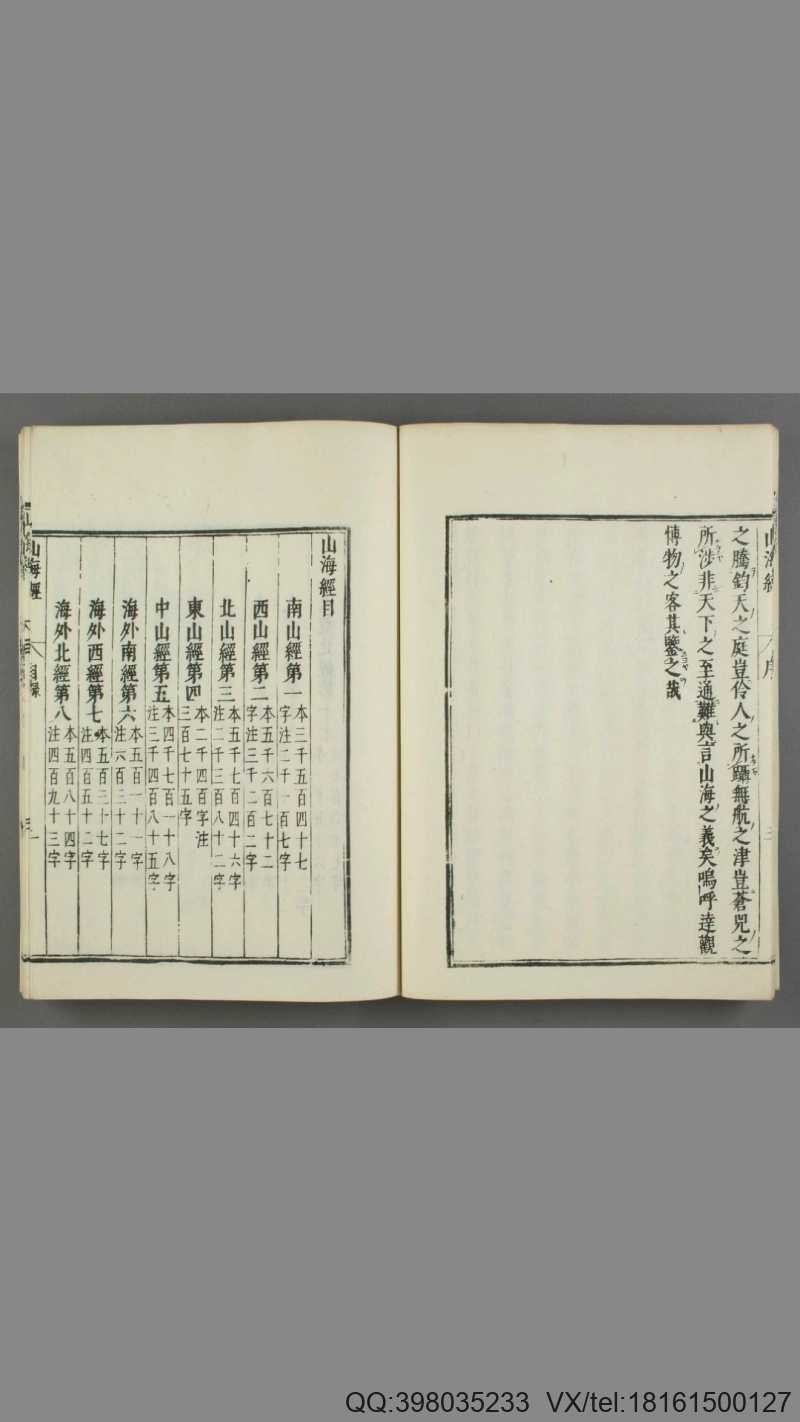 山海經
序
三
之騰鈞天之庭豈伶人之所躡無航之津豈蒼兕之
所涉非天下之至通難與言山海之義矣嗚呼達觀
博物之客其鑒之哉
山海經目
南山經第一 本三千五百四十七字注二千一百七字
西山經第二 本五千六百七十二字注三千二百二字
北山經第三 本五千七百四十六字注二千三百八十二字
東山經第四 本二千四百字注三百七十五字
中山經第五 本四千七百一十八字注三千四百八十五字
海外南經第六 本五百一十一字注六百三十二字
海外西經第七 本五百三十七字注四百五十二字
海外北經第八 本五百八十四字注四百九十三字
山海經
目錄
QQ:398035233 VX/tel:18161500127